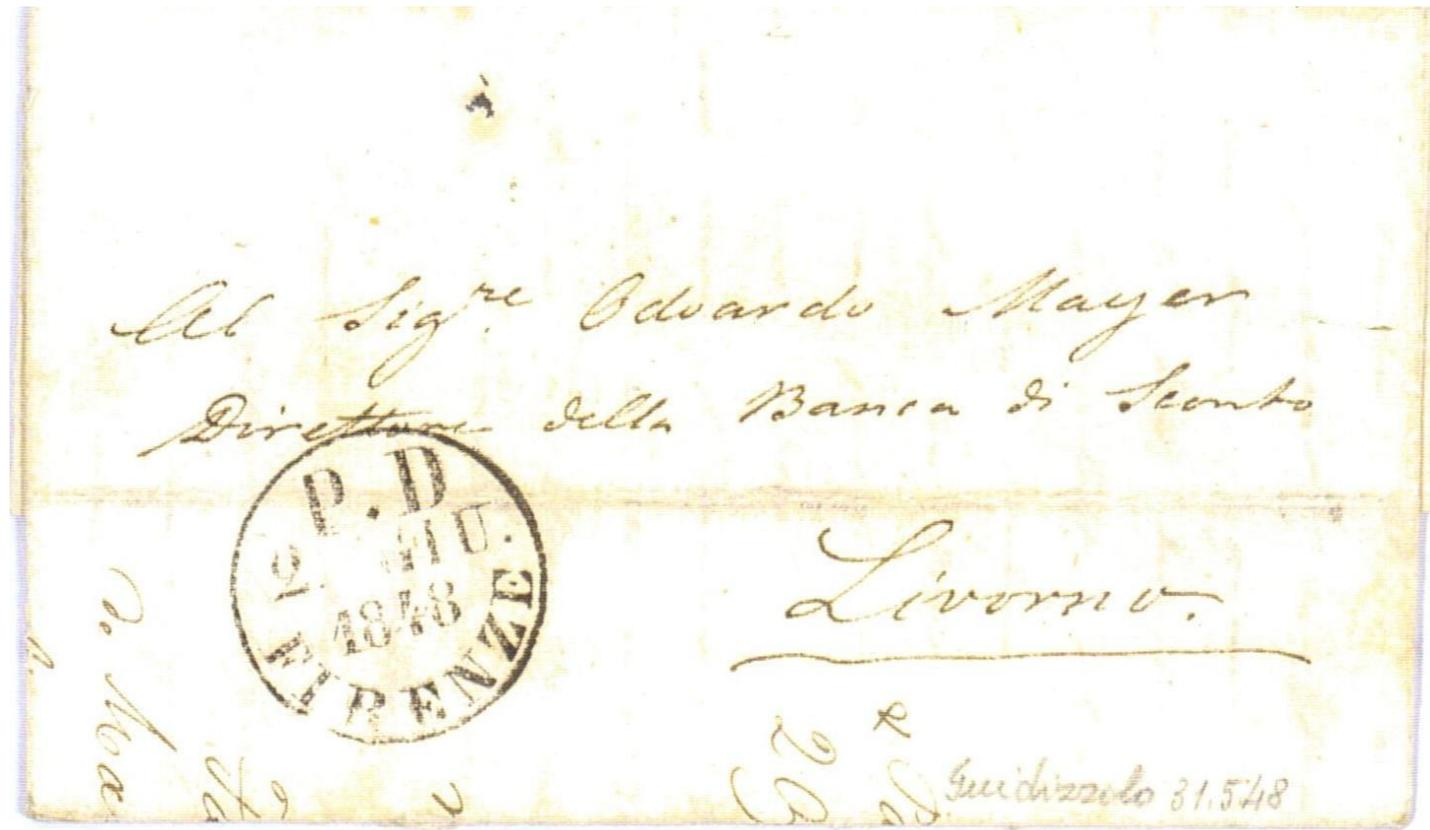 Al Sig.re Odoardo Mayer
Direttore della Banca di Sconto
Livorno.
P.D
2 GIU.
1848
FIRENZE
Guidizzolo 31.5.48